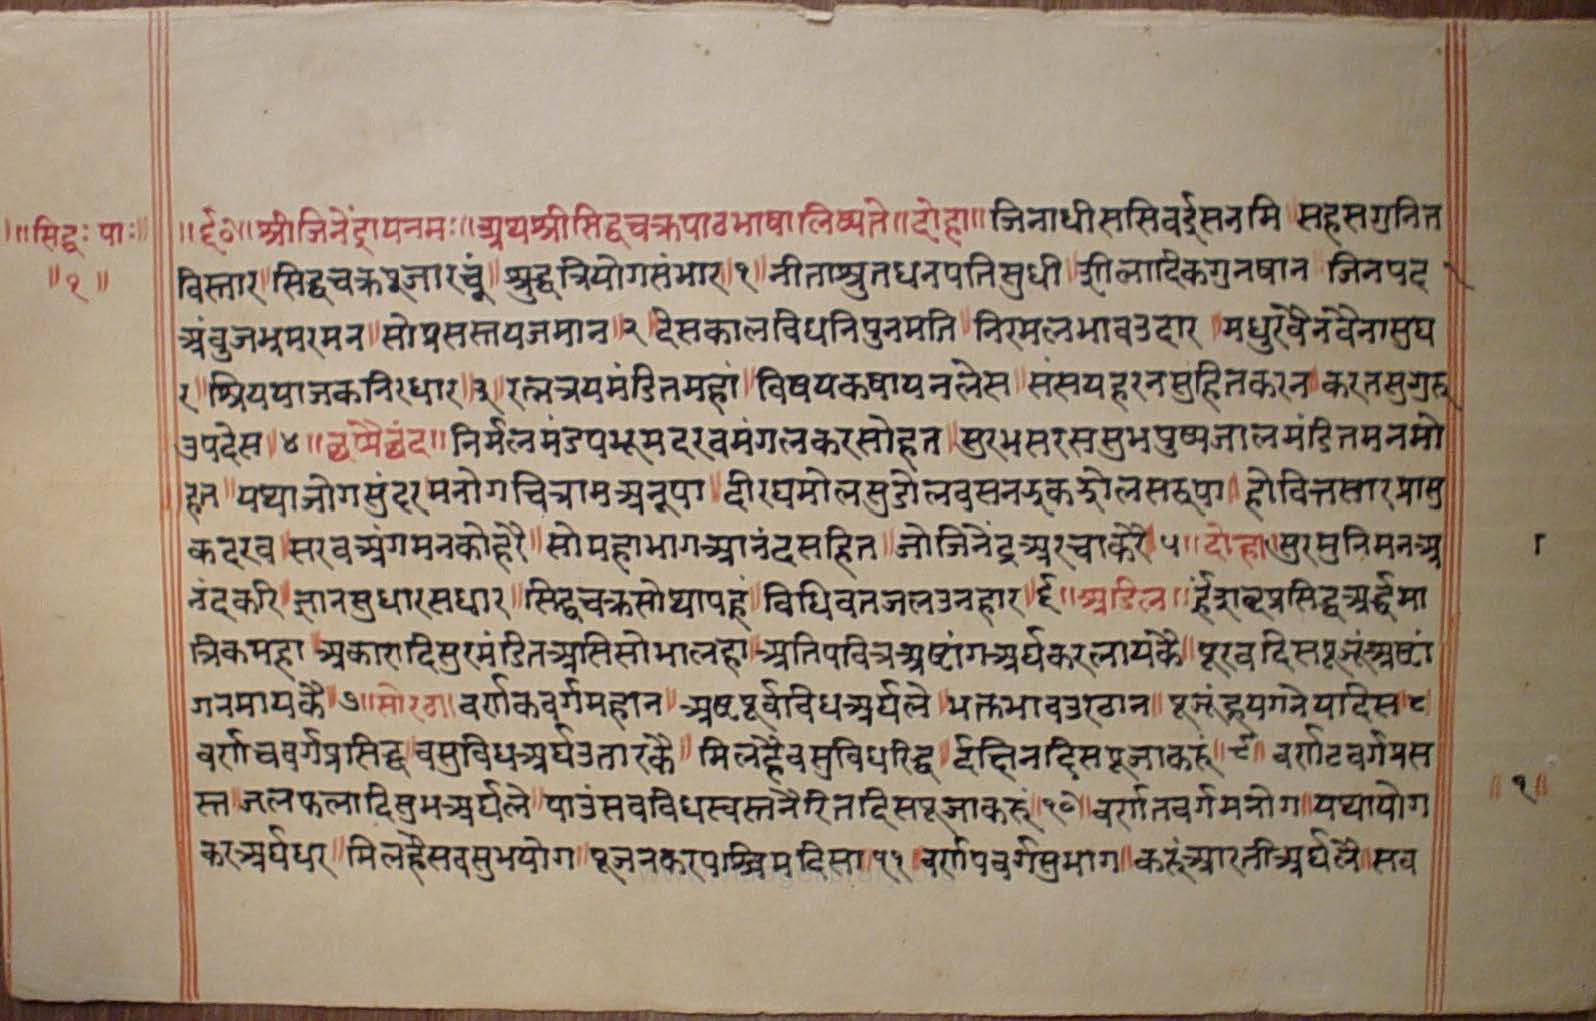 ॥सिद्धः पाः॥
॥१॥
॥र्द्द०॥श्रीजिनेंद्रायनमः॥अथश्रीसिद्धचक्रपाठभाषालिष्यते॥दोहा॥जिनाधीससिवईसनमि सहसगुनित
विस्तार॥सिद्धचक्रपूजारचूं श्रुद्धत्रियोगसंभार॥१॥नीताश्रुतधनपतिसुधी शीलादिकगुनषान जिनपद
अंवुजभ्रमरमन॥सोप्रसस्तयजमान॥२॥देसकालविधनिपुनमति॥निरमलभावउदार॥मधुरवैन
र॥श्रिययाजकनिरधार॥३॥रत्नत्रयमंडितमहां॥विषयकषायनलेस॥संसयहरनसुहितकरन॥करतसुगुरु
उपदेस॥४॥छप्पैछंद॥निर्मलमंडपभूमदरवमंगलकरसोहत॥सुरभसरससुभपुष्पजालमंडितमनमो
हत॥यथाजोगसुंदरमनोगचित्रामअनूपा॥दीरघमोलसुडोलवसन
कदरव॥सरवअंगमनकोहरै॥सोमहाभागआनंदसहित॥जोजिनेंद्रअरचाकरै॥५॥दोहा॥सुरमुनिमनअ
नंदकरि॥ज्ञानसुधारसधार॥सिद्धचक्रसोथापहूं॥विधिवतजलउनहार॥६॥अडिल॥र्हंशब्दप्रसिद्धअर्द्धमा
त्रिकमहा॥अकारादिसुरमंडितअसिसोभालहा॥अतिपवित्रअष्टांगअर्घकरलायकै॥पूरवदिसपूजूंअष्टां
गनमायकै॥७॥सोरठा॥वर्णकवर्गमहान॥अष्टपूर्वविधअर्घले॥भक्तभावउरठान॥पूजूं
वर्णचवर्गप्रसिद्ध॥वसुविधअर्घउतारकै॥मिलहैवसुविधरिद्ध॥र्दछिनदिसपूजाकरूं॥९॥वर्णटवर्गप्रस
स्त॥जलफलादिसुभअर्घले॥पाउंसवविधस्वस्त॥नैरितदिसपूजाकरूं॥१०॥वर्णतवर्गमनोग॥यथायोग
करअर्घधर॥मिलहैसवसुभयोग॥पूजनकरपश्चिमदिसा॥११॥वर्णपवर्गसुभाग॥करूंआरतीअर्घलै॥सव
॥१॥